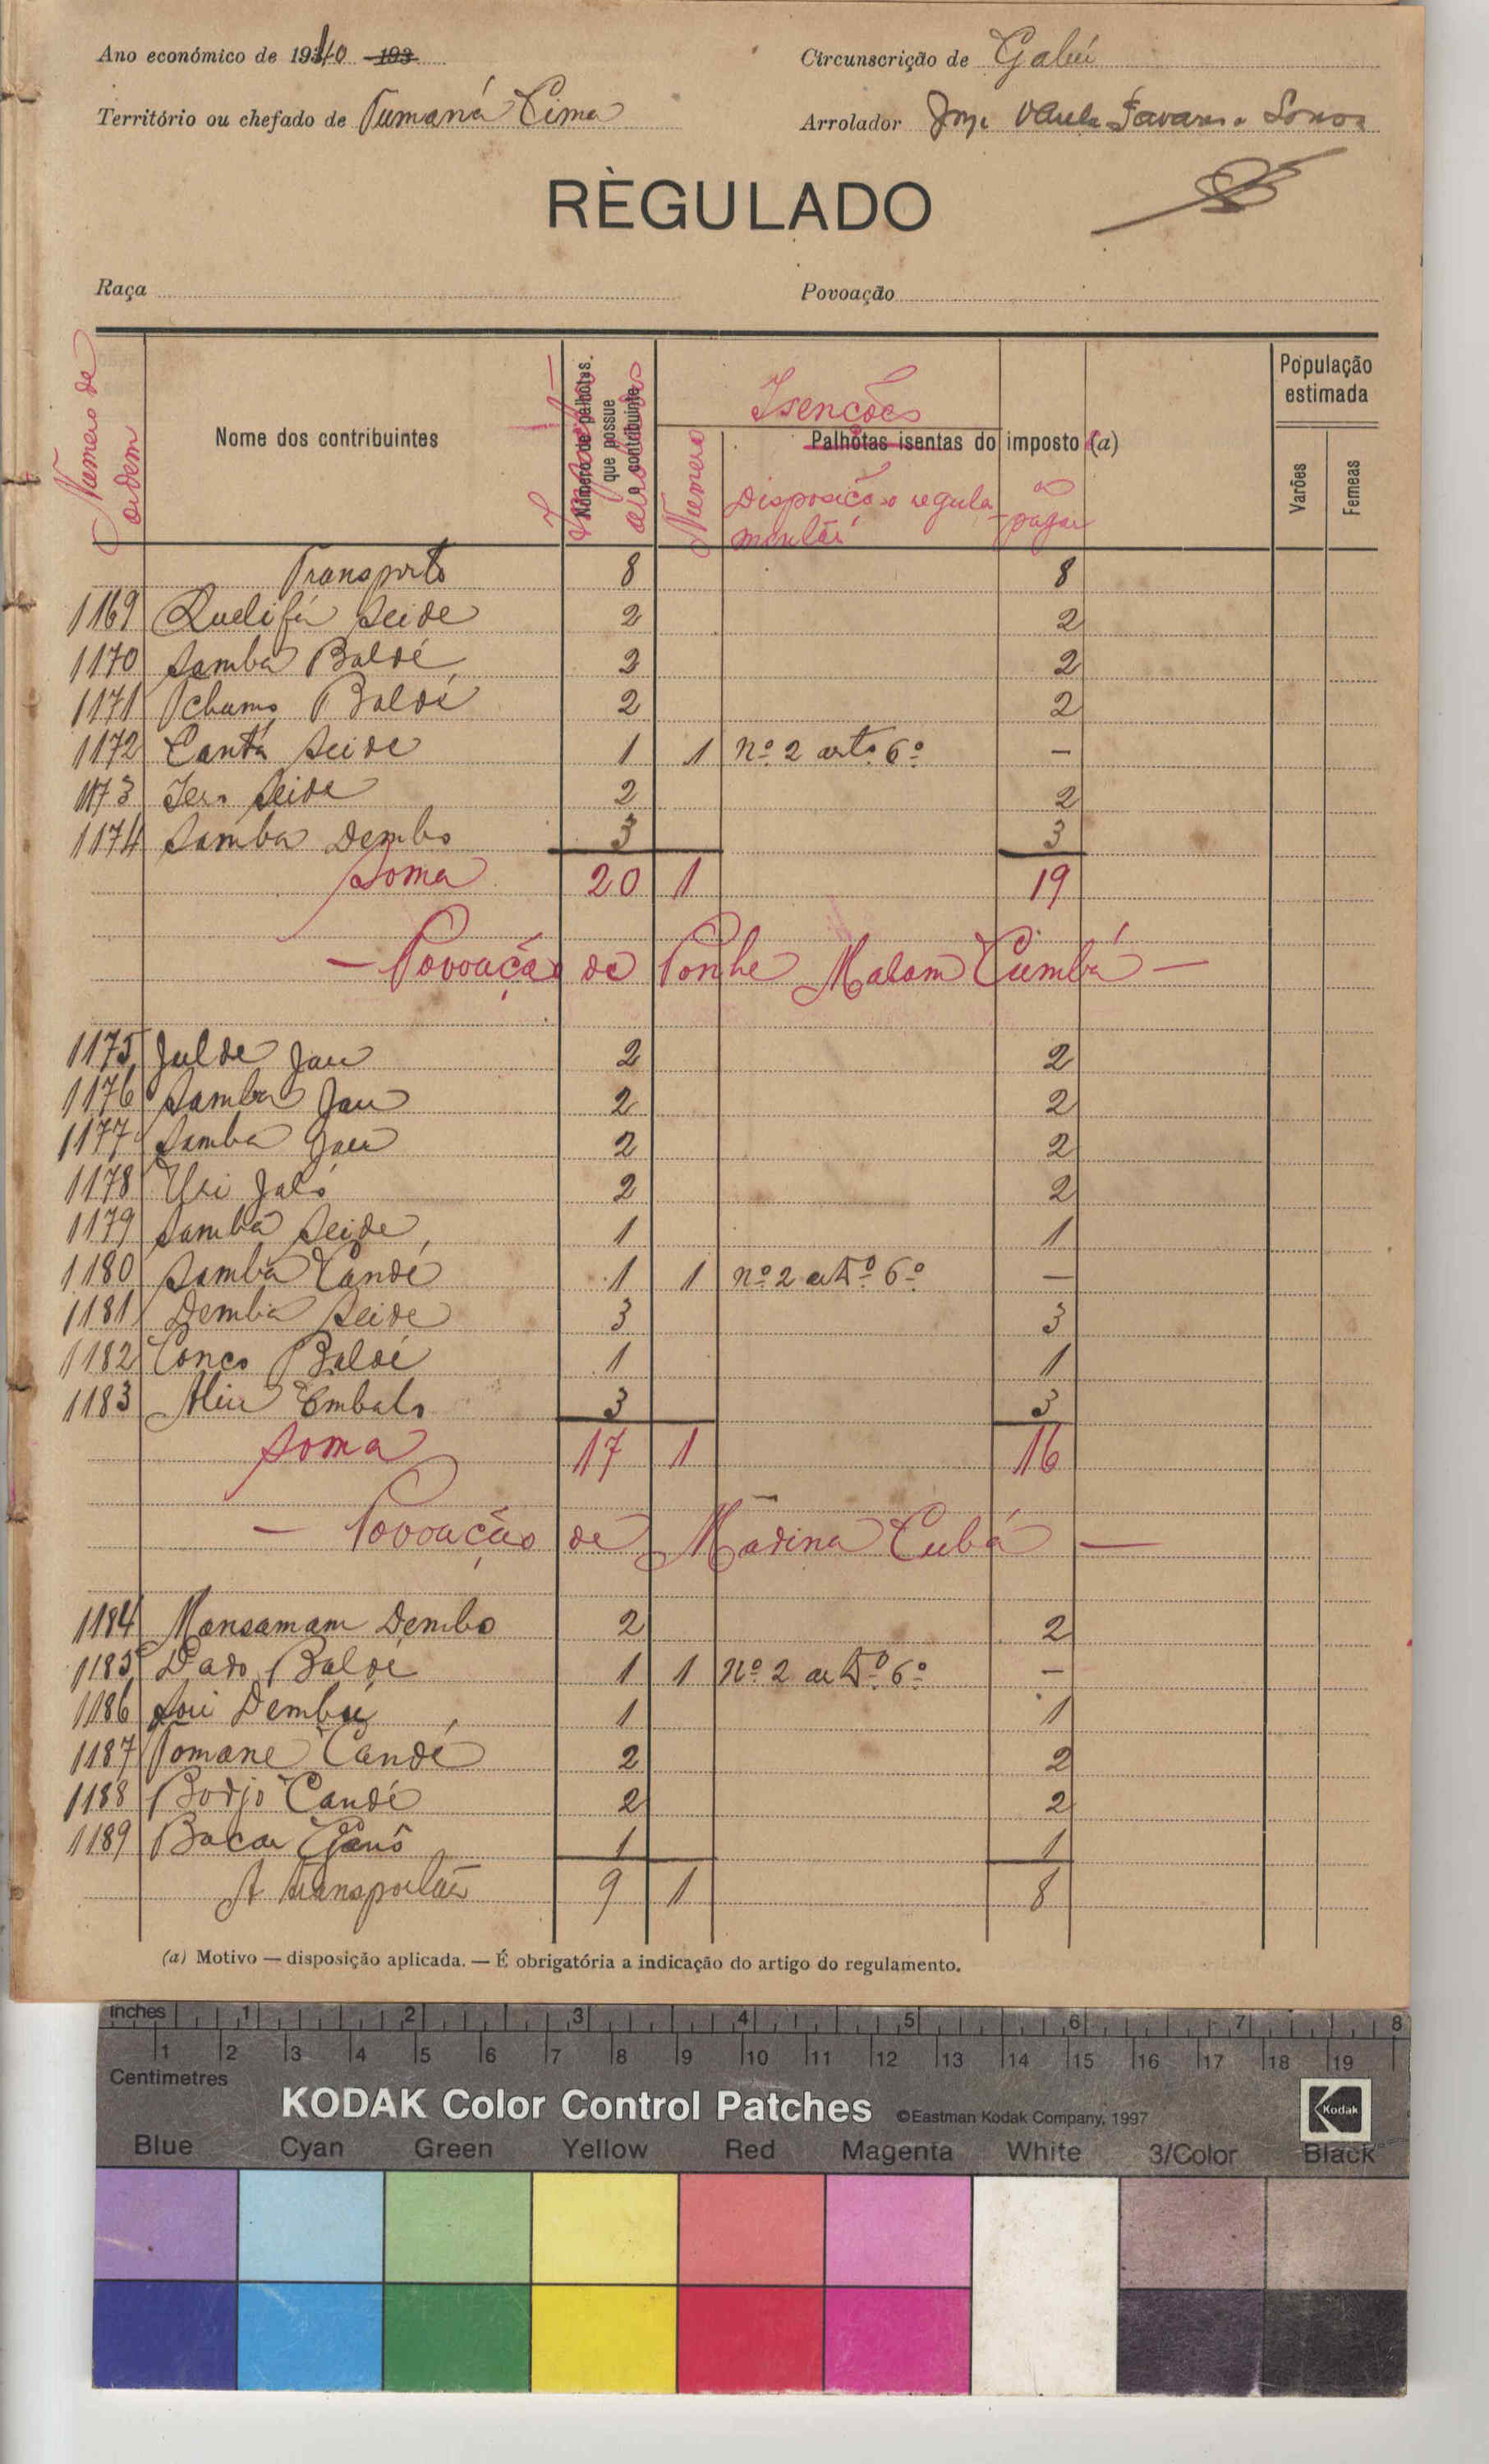 Ano económico de 1940 193
Circunscrição de Gabú
Território ou chefado de Tumaná Cima
Arrolador Jorge Tavares Sousa
RÈGULADO
Raça
Povoação
Numero de ordem
Nome dos contribuintes
Número de palhotas que possue o contribuinte
Isenções
Palhotas isentas do imposto (a)
Numero
Disposição regulamentar
a pagar
População estimada
Varões
Femeas
Transporte 8 8
1169 Quelifá Seide 2 2
1170 Samba Baldé 2 2
1171 Tchamo Baldé 2 2
1172 Cantá Seide 1 1 nº 2 artº 6º —
1173 Seide 2 2
1174 Samba Dembo 3 3
Soma 20 1 19
— Povoação de Ponhe Malam Cumbá —
1175 Julde Jau 2 2
1176 Samba Jau 2 2
1177 Samba Jau 2 2
1178 Uri Jaló 2 2
1179 Samba Seide 1 1
1180 Samba Candé 1 1 nº 2 artº 6º —
1181 Demba Seide 3 3
1182 Conco Baldé 1 1
1183 Aliu Embalo 3 3
Soma 17 1 16
— Povoação de Madina Cubá —
1184 Mansamam Dembo 2 2
1185 Dado Balde 1 1 nº 2 artº 6º —
1186 Dembú 1 1
1187 Tomane Candé 2 2
1188 Bodjo Candé 2 2
1189 Bacar Ganô 1 1
A transportar 9 1 8
(a) Motivo — disposição aplicada. — É obrigatória a indicação do artigo do regulamento.
inches 1 2 3 4 5 6 7 8
1 2 3 4 5 6 7 8 9 10 11 12 13 14 15 16 17 18 19
Centimetres
KODAK Color Control Patches ©Eastman Kodak Company, 1997 Kodak
Blue Cyan Green Yellow Red Magenta White 3/Color Black